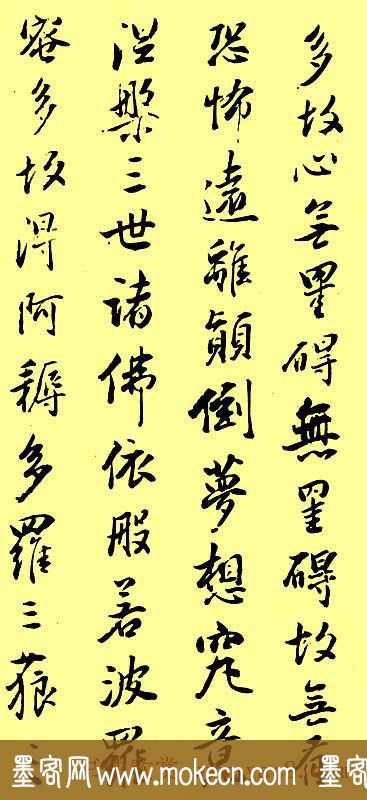 多故心無罣碍無罣碍故無有
恐怖遠離顛倒夢想究竟
涅槃三世諸佛依般若波羅
蜜多故得阿耨多羅三藐三
墨客网 www.mokecn.com 墨客网